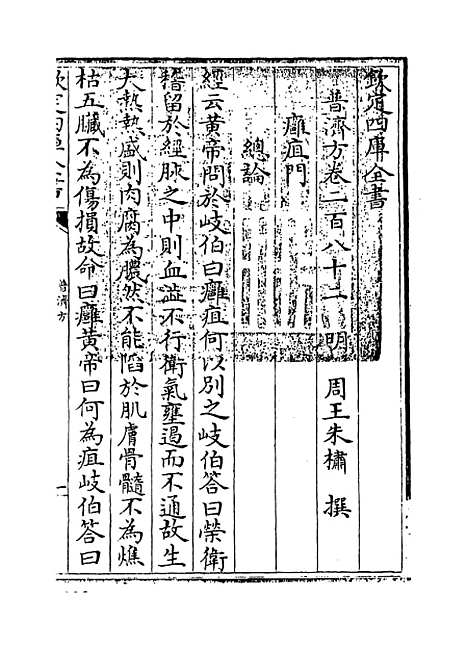 欽定四庫全書
普濟方卷二百八十二　明　周王朱橚　撰
癰疽門
總論
經云黃帝問於岐伯曰癰疽何以別之岐伯答曰榮衛
稽留於經脉之中則血澁不行衛氣壅遏而不通故生
大熱熱盛則肉腐為膿然不能陷於肌膚骨髓不為燋
枯五臟不為傷損故命曰癰黃帝曰何為疽岐伯答曰
欽定四庫全書
普濟方
一